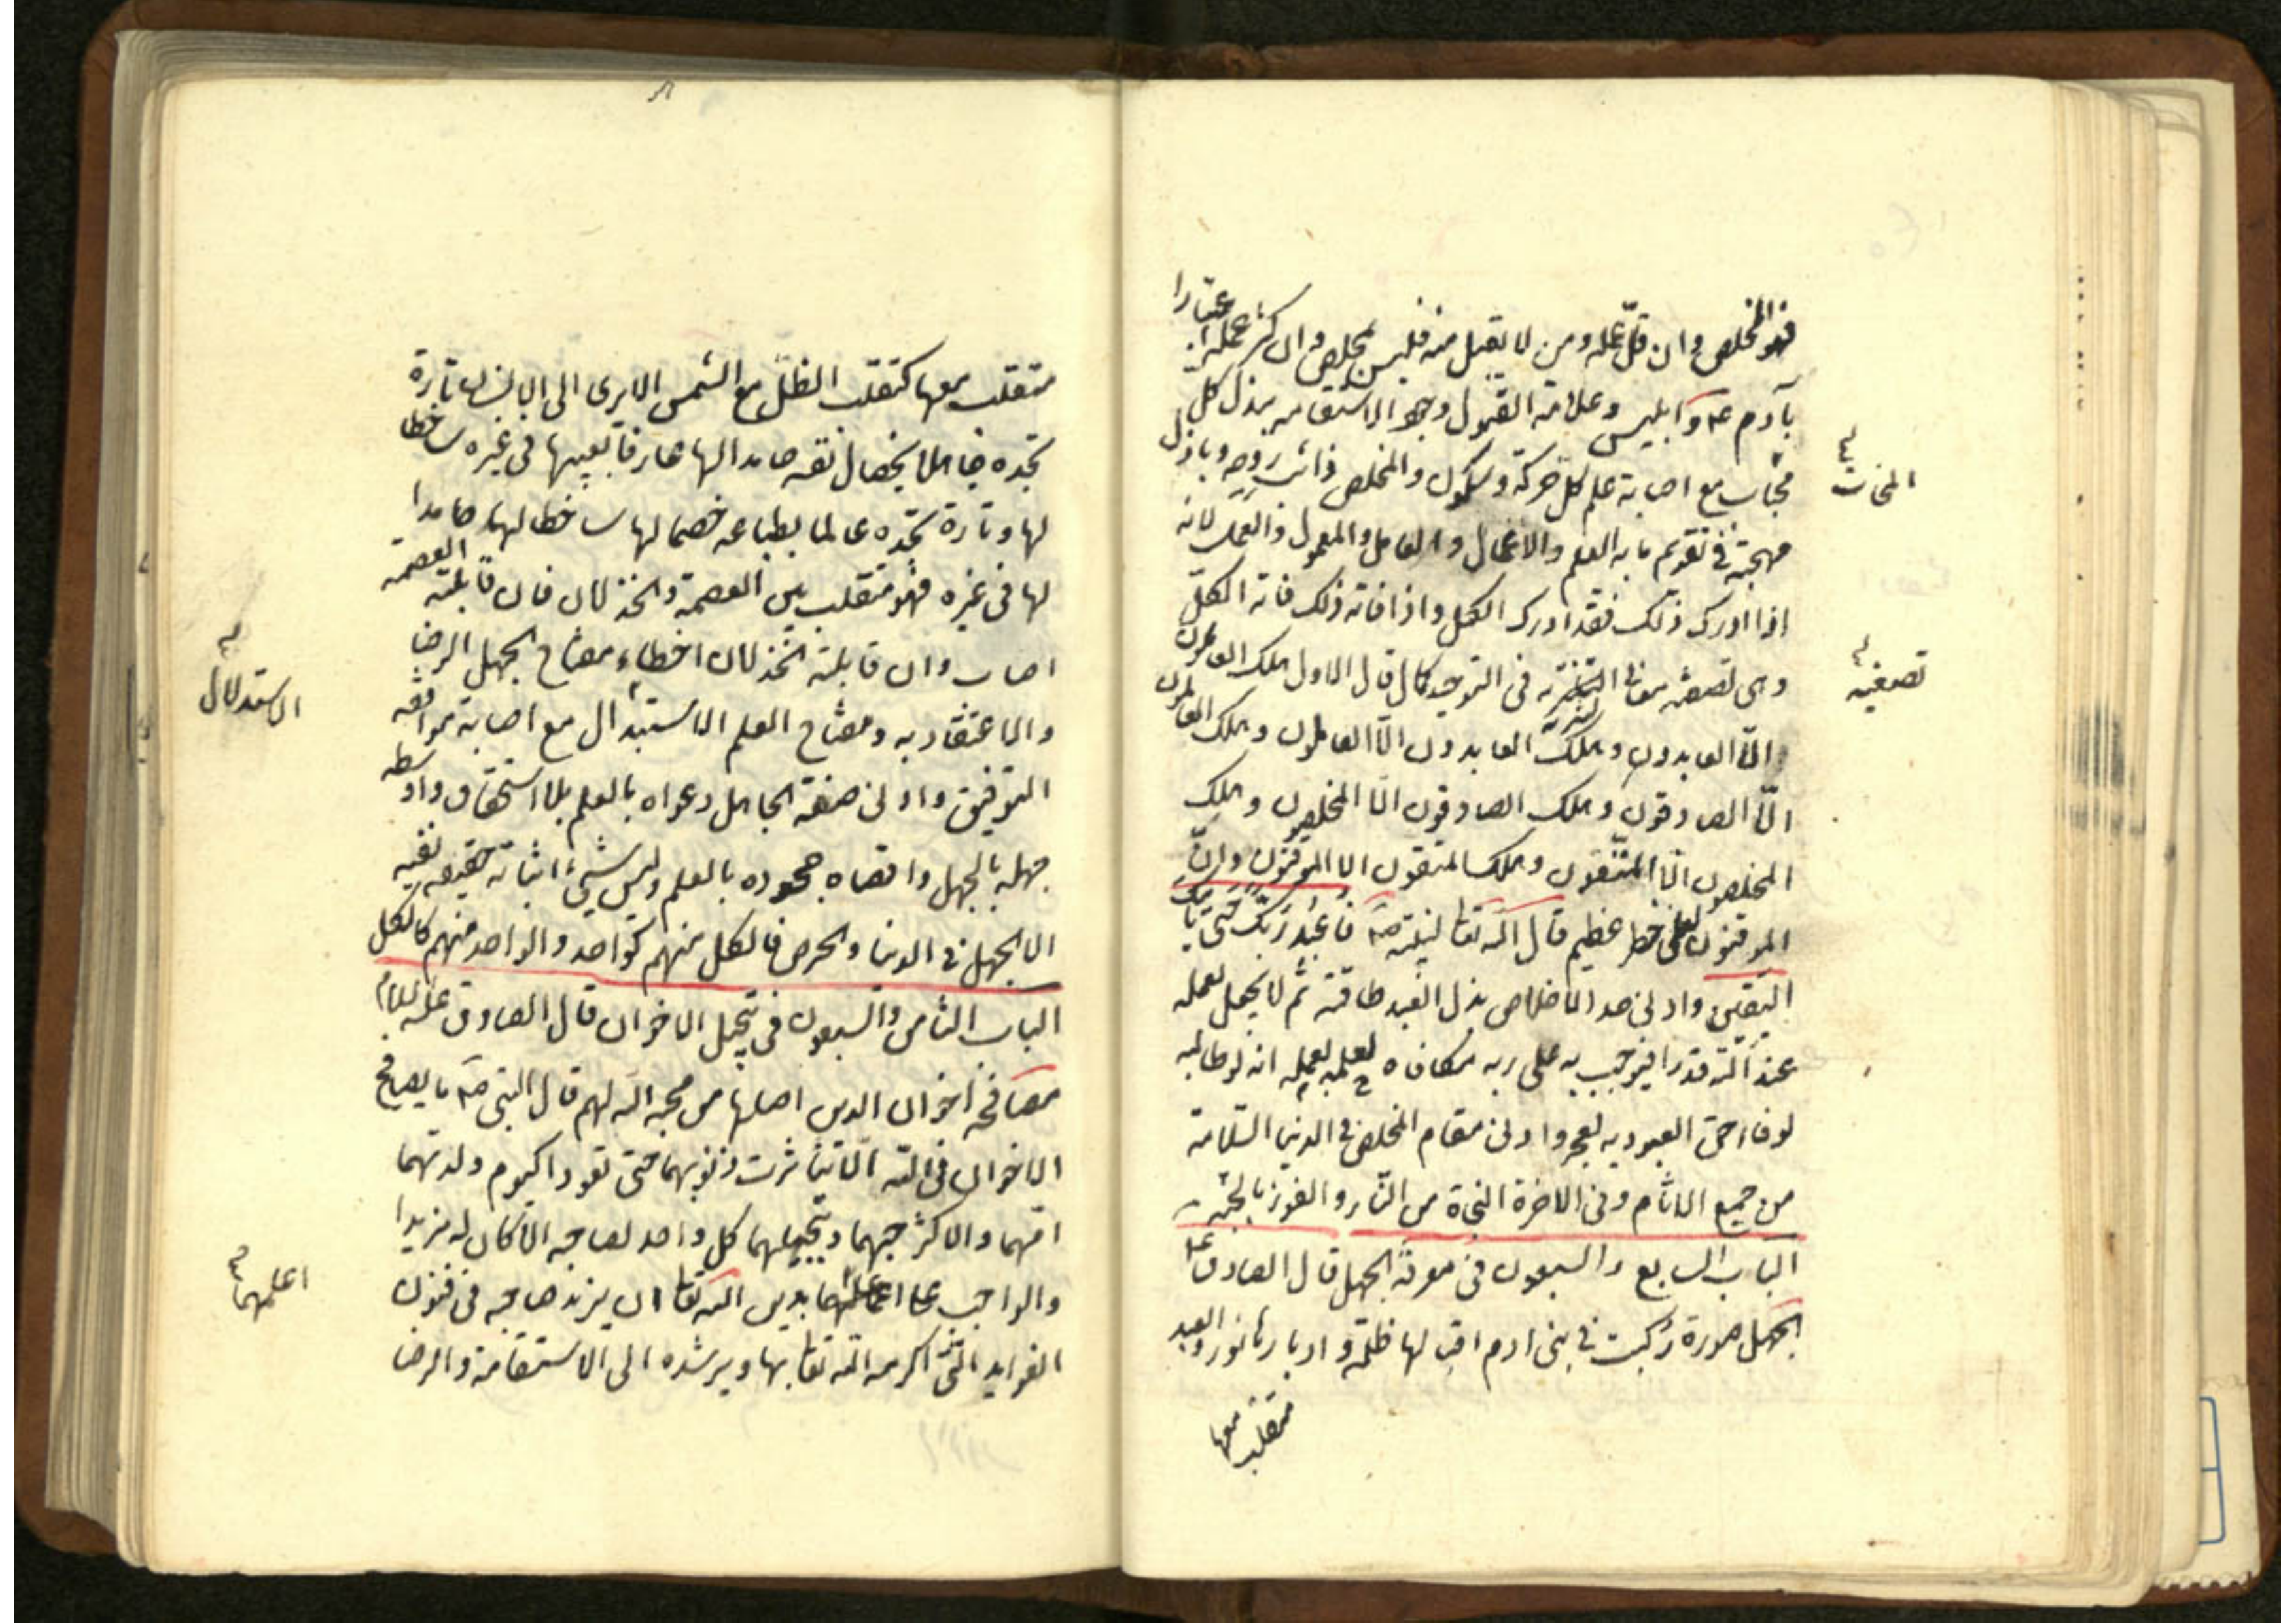 فهو المخلص وان قلّ عمله ومن لا يقبل منه فليس بمخلص وان كثر عمله اعتبارا
بآدم عم وابليس وعلامة القبول وجود الاستقامة ببذل كل
محاب مع اصابة علم كل حركة وسكون والمخلص ذائب روحه وباذل
المحاب
مهجته في تقويم ما به العلم والاعمال والعامل والمعمول والعمل لانه
اذا ادرك ذلك فقد ادرك الكل واذا فاته ذلك فاته الكل
وهى تصفية معانى التنزيه فى التوحيد كما قال الاول هلك العاملون
تصفيه
الّا العابدون وهلك العابدون الّا العالمون وهلك العالمون
الّا الصادقون وهلك الصادقون الّا المخلصون وهلك
المخلصون الّا المتّقون وهلك المتقون الا الموقنون وانّ
الموقنون لعلى خطر عظيم قال الله تعا لنبيّه صم فاعبد ربك حتى ياتيك
اليقين وادنى حد الاخلاص بذل العبد طاقته ثم لا يجعل لعمله
عند الله قدرا فيوجب به على ربه مكافاه لعلمه بعمله انه لو طالبه
لوفاء حق العبوديه لعجز وادنى مقام المخلص فى الدنيا السّلامة
من جميع الاثام وفى الاخرة النجاة من النّار والفوز بالجنّة
الباب السابع والسبعون فى معرفة الجهل قال الصادق عم
الجهل صورة ركبت فى بنى ادم اقبالها ظلمة وادبارها نور والعبد
متقلب معها
متقلب معها كتقلب الظلّ مع الشمس الا يرى الى الانسان تارة
تجده جاهلا بخصال نفسه حامدا لها عارفا بعيبها فى غيره ساخطا
لها وتارة تجده عالما بطباعه خصما لها ساخطا لها حامدا
لها فى غيره فهو متقلب بين العصمة والخذلان فان قابلته العصمة
اصاب وان قابلته الخذلان اخطاء ومفتاح الجهل الرضا
والاعتقاد به ومفتاح العلم الاستبدال مع اصابة موافقه
الاستدلال
التوفيق وادنى صفة الجاهل دعواه بالعلم بلا استحقاق واوسطه
جهله بالجهل واقصاه جحوده بالعلم وليس شىء اثباته حقيقه نفيه
الا الجهل فى الدنيا والحرص فالكل منهم كواحد والواحد منهم كالكل
الباب الثامن والسبعون فى تبجيل الاخوان قال الصادق عليه السلام
مصافحة اخوان الدين اصلها من محبه الله لهم قال النبى صم ما يصافح
الاخوان فى الله الّا تناثرت ذنوبهما حتى تعودا كيوم ولدتهما
امّهما والا كثر حبهما وتبجيلهما كل واحد لصاحبه الا كان له مزيدا
والواجب على اعلمهما بدين الله تعا ان يزيد صاحبه فى فنون
اعلمهما
الفوايد التى اكرمه الله تعا بها ويرشده الى الاستقامة والرضا